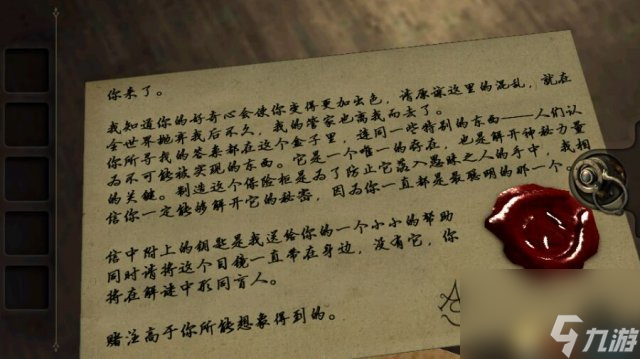 你来了。
我知道你的好奇心会使你变得更加出色，请原谅这里的混乱，就在
全世界抛弃我后不久，我的管家也离我而去了。
你所寻找的答案都在这个盒子里，连同一些特别的东西——人们认
为不可能被实现的东西。它是一个唯一的存在，也是解开神秘力量
的关键。制造这个保险柜是为了防止它落入愚昧之人的手中，我相
信你一定能够解开它的秘密，因为你一直都是最聪明的那一个。
信中附上的钥匙是我送给你的一个小小的帮助
同时请将这个目镜一直带在身边，没有它，你
将在解谜中形同盲人。
赌注高于你所能想象得到的。
九游